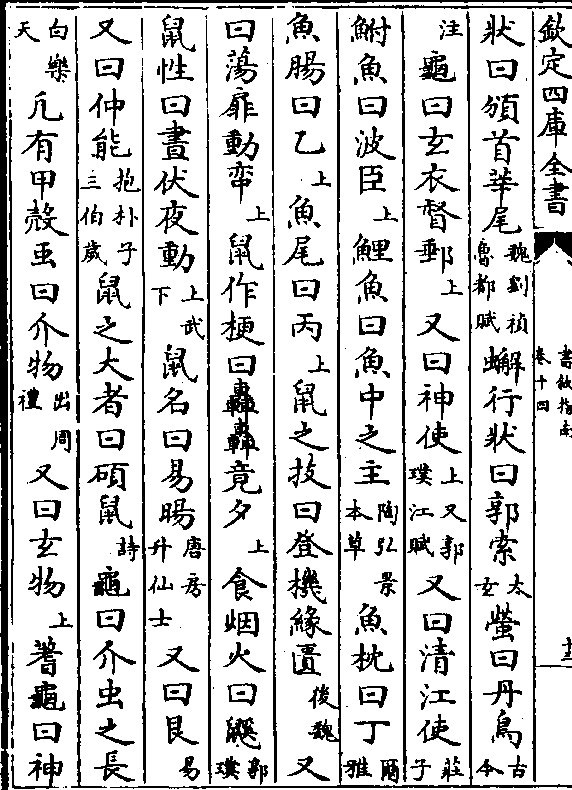 欽定四庫全書 書敘指南 卷十四
狀曰頒首莘尾魏劉禎魯都賦蠏行狀曰郭索太玄螢曰丹鳥古今
注龜曰玄衣督郵上又曰神使上又郭璞江賦又曰清江使莊子
鮒魚曰波臣上鯉魚曰魚中之主陶弘景本草魚枕曰丁爾雅
魚腸曰乙上魚尾曰丙上鼠之技曰登機緣匱後魏又
曰蕩扉動帟上鼠作梗曰轟轟竟夕上食烟火曰鼷郭璞
鼠性曰晝伏夜動上武下鼠名曰易腸唐房升仙士又曰艮易
又曰仲能抱朴子三伯歲鼠之大者曰碩鼠詩龜曰介虫之長
白樂天凡有甲殼䖝曰介物出周禮又曰玄物上蓍龜曰神